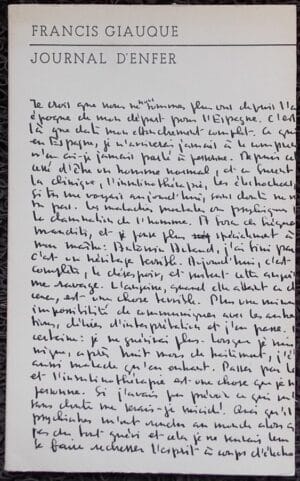 FRANCIS GIAUQUE
JOURNAL D'ENFER
Je crois que nous ne nous sommes plus vus depuis l'
époque de mon départ pour l'Espagne. C'est
là que date mon complet. Ce
en Espagne, je n'arriverai jamais à le
n'en ai-je jamais parlé à personne. Depuis
cessé d'être un homme normal, et a
la clinique, l'insulinothérapie, les électrochocs
Si tu me voyais aujourd'hui, sans doute ne
pas. Les maladies mentales ou psychiques
la damnation de l'homme. A force de
maudits, et je pense plus précisément à
mon maître: Antonin Artaud, j'ai
c'est un héritage terrible. Aujourd'hui, c'est
complète, le désespoir, et surtout cette
me ravage. L'angoisse, quand elle atteint
est une chose terrible. Plus une
impossibilité de communiquer avec les autres
d'idées d'interprétation et j'en passe.
certain: je ne guérirai plus. Lorsque je
après huit mois de traitement, j'
aussi malade qu'en entrant. Passer par
et l'insulinothérapie est une chose que je
personne. Si j'avais pu prévoir ce qui
sans doute me serais-je suicidé. Ainsi
psychiatres m'ont rendu au monde alors
pas du tout guéri et cela je ne
le faire l'esprit à coups d'